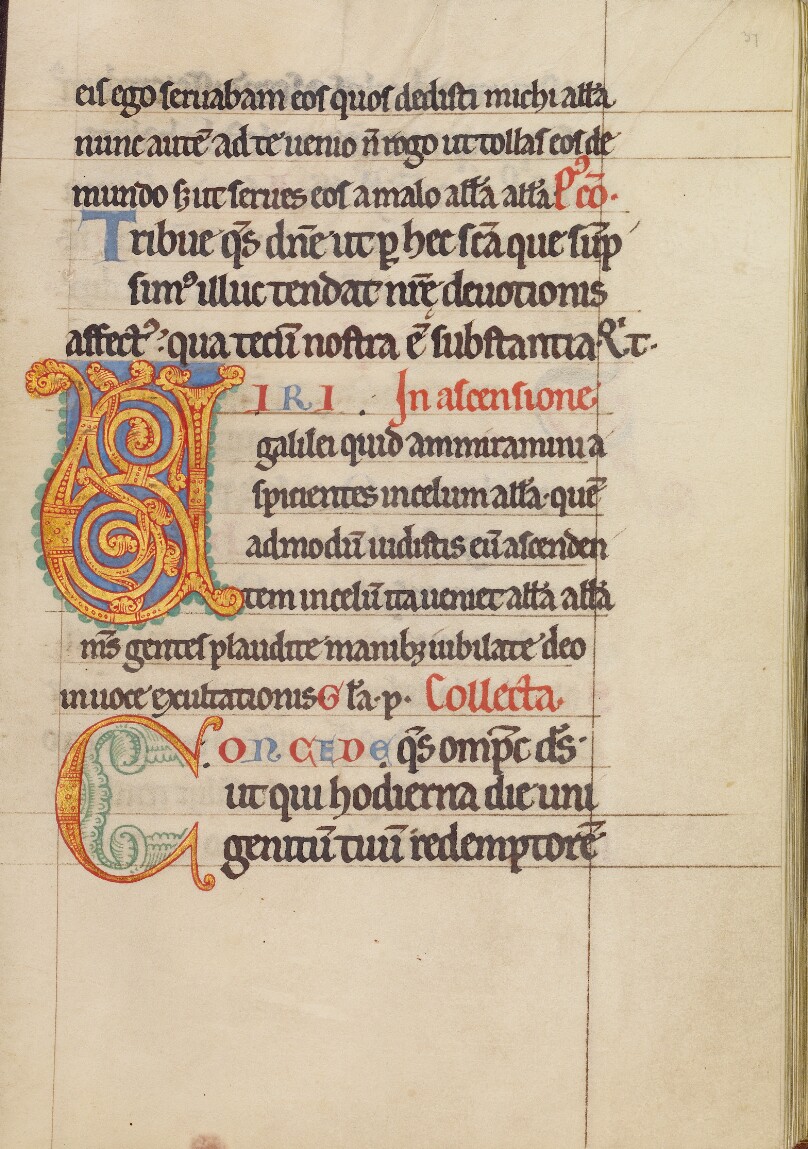 37
eis ego seruabam eos quos dedisti michi all'a
nunc autē ad te uenio n̄ rogo ut tollas eos de
mundo s; ut serues eos a malo all'a all'a P' cō.
Tribue q̄s dn̄e ut ꝑ hec sc̄a que sūp
simꝰ illuc tendat nr̄ę deuotionis
affectꝰ: qua tecū nostra ē substantia. Q' t.
VIRI. In ascensione
galilei quid ammiramini a
spicientes in celum all'a. quē
admodū uidistis eū ascenden
tem in celū ita ueniet all'a all'a
m̄s gentes plaudite manibꝫ iubilate deo
in uoce exultationis G l'a. p. Collecta.
CONCEDE q̄s omp̄c d̄s.
ut qui hodierna die uni
genitū tuū redemptorē